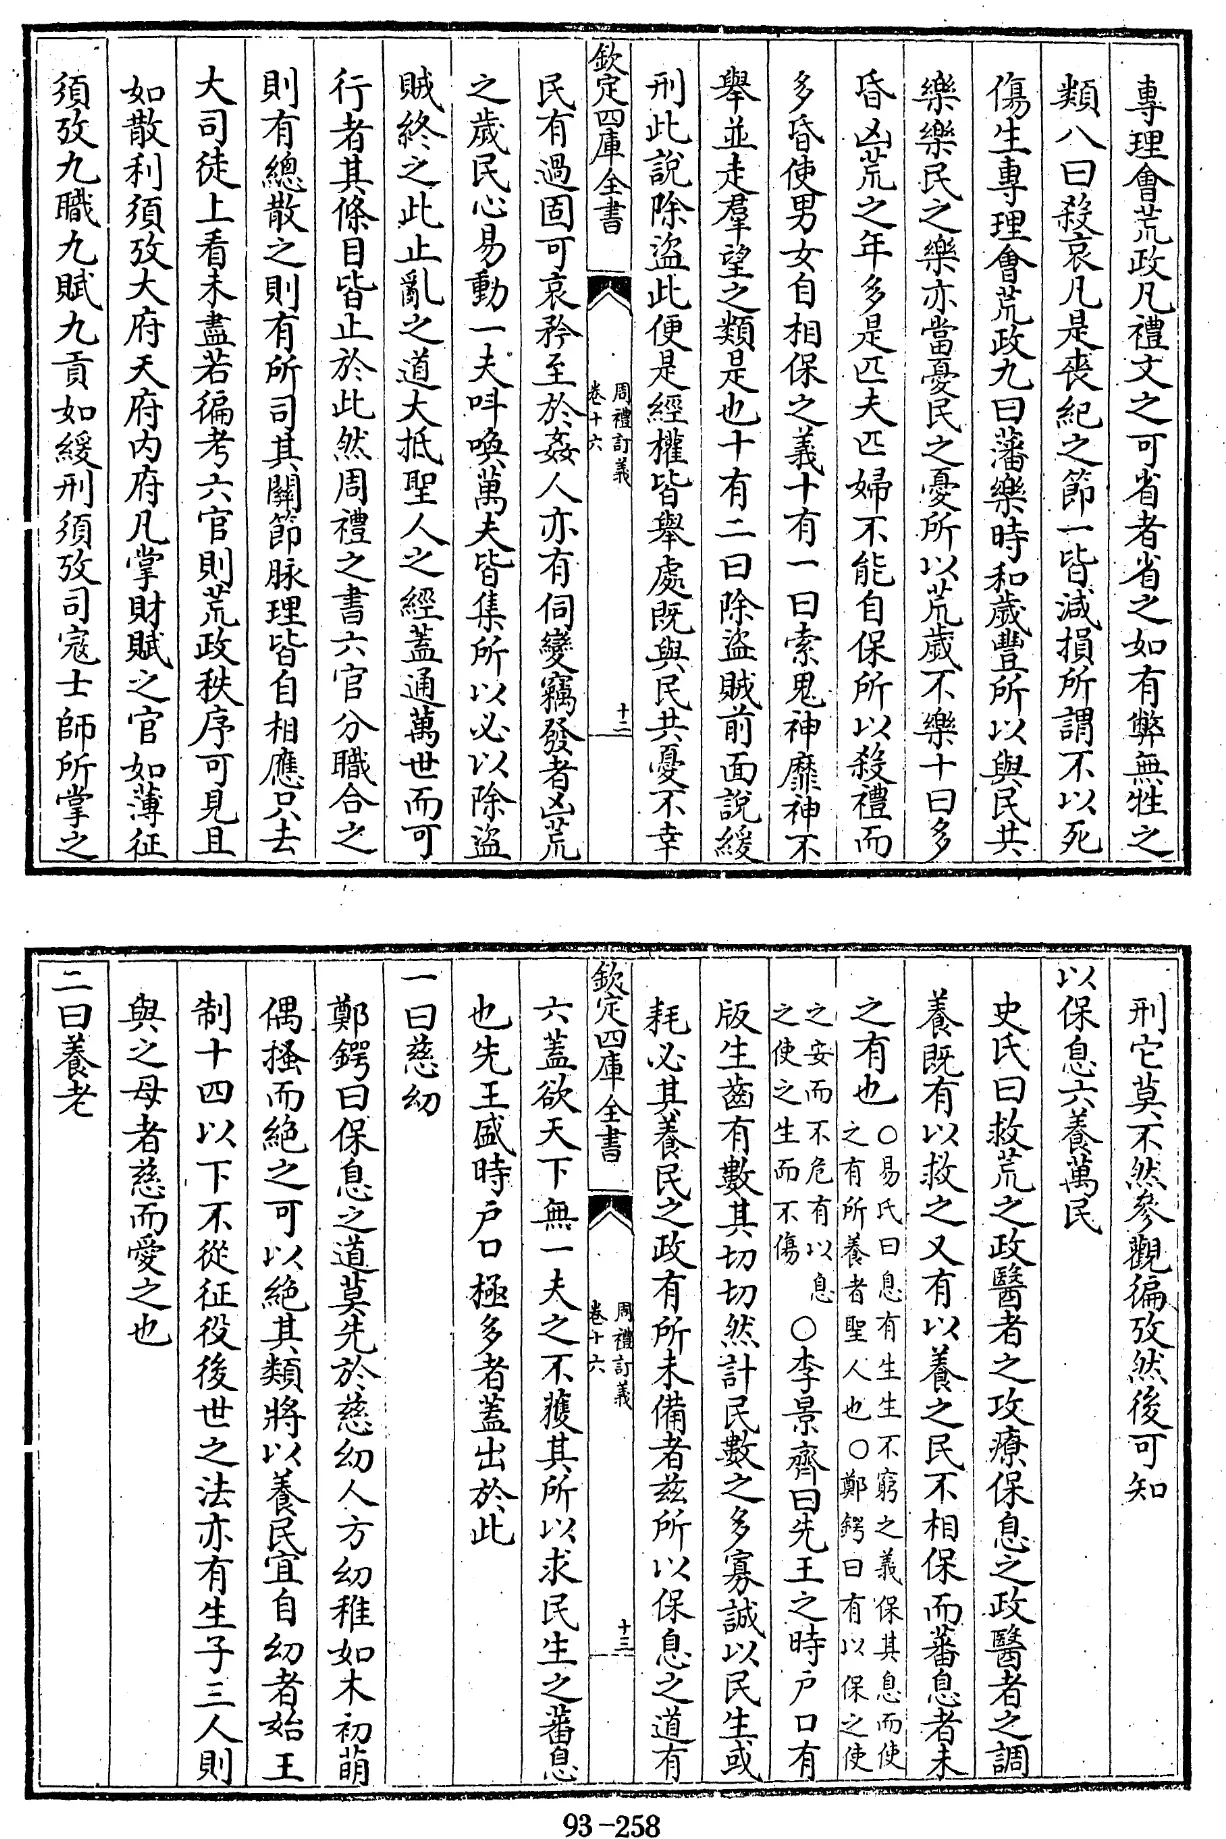 專理會荒政凡禮文之可省者省之如有弊無牲之
類八曰殺哀凡是喪紀之節一皆減損所謂不以死
傷生專理會荒政九曰蕃樂時和歲豐所以與民共
樂樂民之樂亦當憂民之憂所以荒歲不樂十曰多
昏凶荒之年多是匹夫匹婦不能自保所以殺禮而
多昏使男女自相保之義十有一曰索鬼神靡神不
舉並走羣望之類是也十有二曰除盜賊前面說緩
刑此說除盜此便是經權皆舉處既與民共憂不幸
欽定四庫全書
周禮訂義
卷十六
十二
民有過固可哀矜至於姦人亦有伺變竊發者凶荒
之歲民心易動一夫呌喚萬夫皆集所以必以除盜
賊終之此止亂之道大抵聖人之經蓋通萬世而可
行者其條目皆止於此然周禮之書六官分職合之
則有總散之則有所司其關節脉理皆自相應只去
大司徒上看未盡若徧考六官則荒政秩序可見且
如散利須攷大府天府内府凡掌財賦之官如薄征
須攷九職九賦九貢如緩刑須攷司寇士師所掌之
刑它莫不然參觀徧攷然後可知
以保息六養萬民
史氏曰救荒之政醫者之攻療保息之政醫者之調
養既有以救之又有以養之民不相保而蕃息者未
之有也
○易氏曰息有生生不窮之義保其息而使
之有所養者聖人也○鄭鍔曰有以保之使
之安而不危有以息
之使之生而不傷
○李景齊曰先王之時户口有
版生齒有數其切切然計民數之多寡誠以民生或
耗必其養民之政有所未備者兹所以保息之道有
欽定四庫全書
周禮訂義
卷十六
十三
六蓋欲天下無一夫之不獲其所以求民生之蕃息
也先王盛時户口極多者蓋出於此
一曰慈幼
鄭鍔曰保息之道莫先於慈幼人方幼稚如木初萌
偶搔而絶之可以絶其類將以養民宜自幼者始王
制十四以下不從征役後世之法亦有生子三人則
與之母者慈而愛之也
二曰養老
93-258